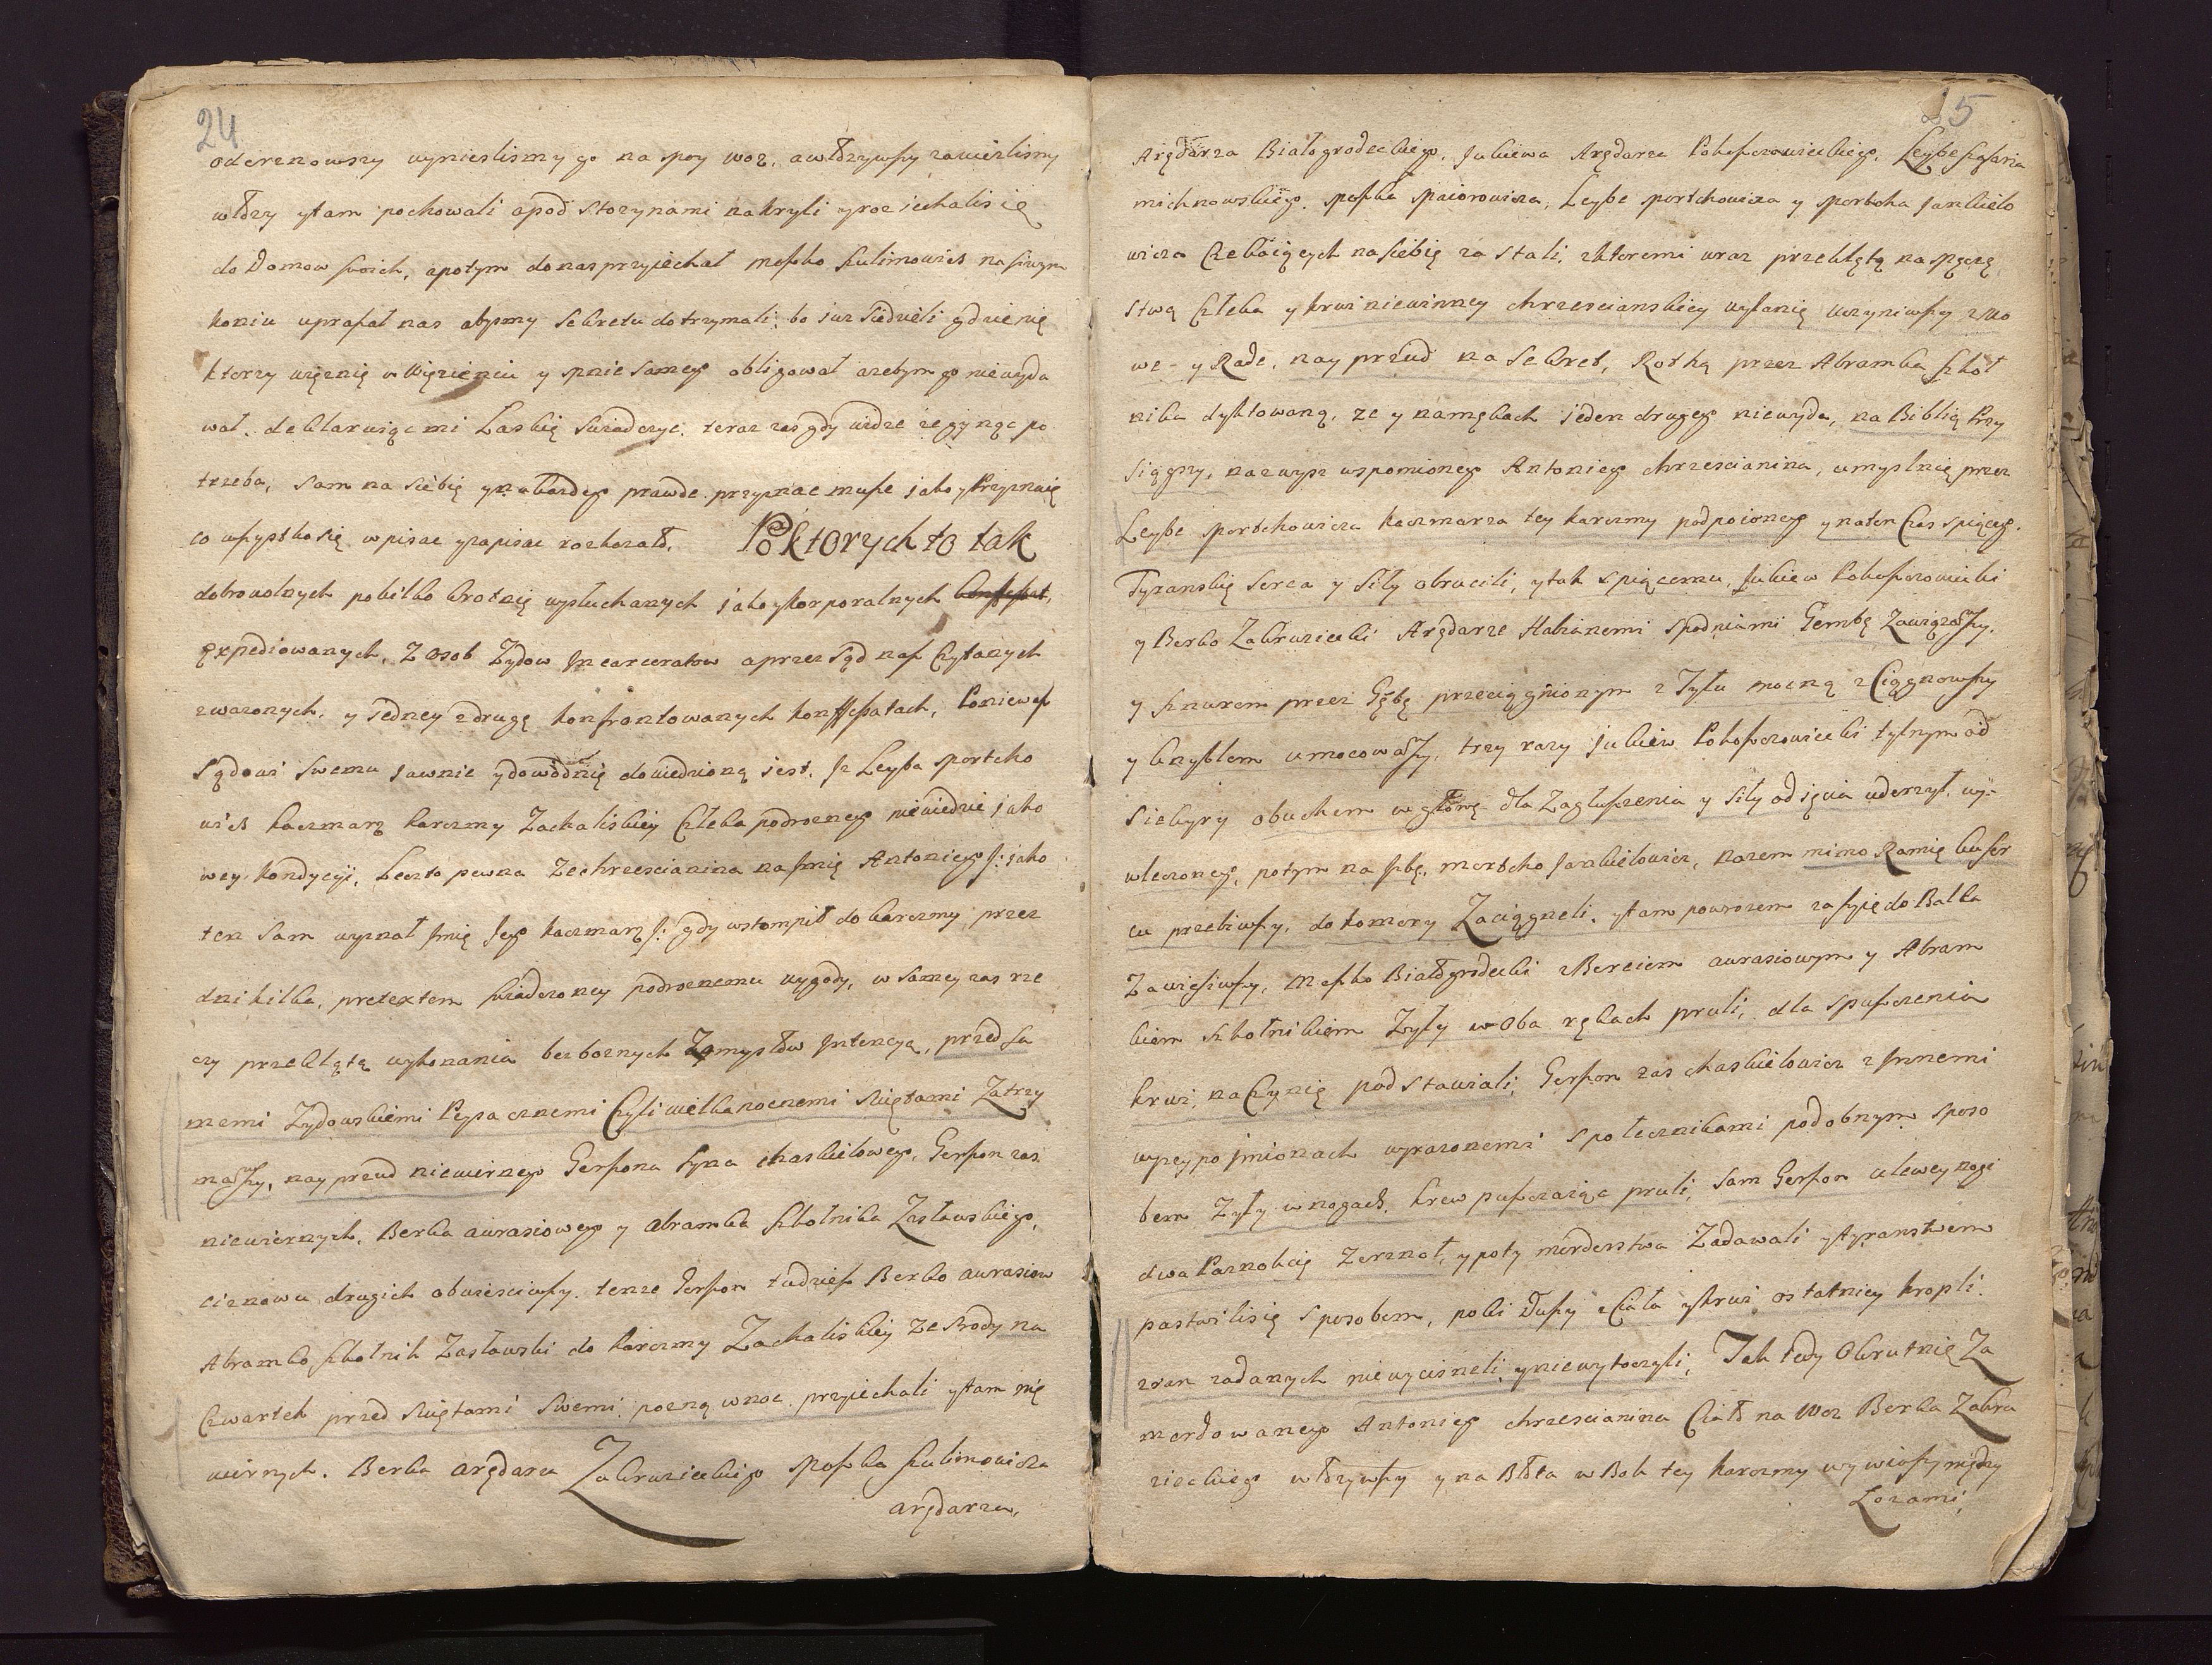 24
oderznowszy wynieslismy go na spoy woz, a włozywszy zawiezlismy
w łozy y tam pochowali a pod storzynami nakryli y roziechalis ię
do Domow swoich, a potym do nas przyiechał Moszko Kulimowicz na siwym
koniu upraszał nas abysmy Sekretu dotrzymali, bo iuz Siedzieli y dzienię
ktorzy więznię w Więzieniu y mnie Samego obligował azebym go nie wyda
wał, deklaruiąc mi Łaskię Swiadczyc, teraz zas gdy widze ze gynąc po
trzeba, Sam na Siebię y na kazdego prawde przyznac musze iako y Przyznaię
co wszystko się wpisac y zapisac rozkazał. Po ktorych to tak
dobrowolnych po kilko krotnię wysłuchanych iako y korporalnych
expediowanych, Z osob Zydow Incarceratow a przez Sąd nasz Czytanych
zwazonych, y iedney z drugą konfrontowanych konfessatach, Poniewasz
Sądowi Swemu iawnie y dowodnię dowiedzioną iest. Iz Leyba Mortcho
wicz kaczmarz karczmy Zachalskiey Człeka podroznego niewiedzieć iako
wey kondycyi, Lecz to pewna Ze chrzescianina na Imię Antoniego /: iako
ten Sam wyznał Imię Jego kaczmarz :/ gdy wstompił do karczmy, przez
dni kilka, pretextem swiadczoney podroznemu wygody, w Samey zas rze
czy przeklętą wykonania bezboznych Zamysłow Intencyą, przed Sa
memi Zydowskiemi Peysacznemi Czyli wielkanocnemi Swiętami Zatrzy
mawszy, nayprzud niewirnego Gerszona Syna Chaskielowego, Gerszon zas
niewiernych, Berka aurasiowego y Abramka Szkolnika Zasławskiego,
ci znowu drugich obwiesciwszy. tenze Gerszon tudziesz Berko aurasiow
Abramko Szkolnik Zasławski do Karczmy Zachalskiey ze Srody na
Czwartek przed Swiętami Swemi, pozną w noc przyiechali y tam nie
wirnych. Berka arędarza Zakruzieckiego Moszka Kulimowicza
arędarza,
25
Arędarza Białogrodeckiego, Jukiewa Arędarza Pohoszczowieckiego, Leybe Szafarza
michnowskiego, Moszka Maiorowicza, Leybe Mortchowicza y Mortcha Jankielo
wicza Czekaiących na Siebię za Stali, z ktoremi wraz przeklętą na Męczę
stwą Człeka y krwi niewinney chrzescianskiey wylanię uczyniwszy zmo
we - y Rade, nayprzud na Sekret, Rothą przez Abramka Szkol
nika dyktowaną, ze y na mękach ieden drugego niewyda, na Biblią Przy
Sięgszy, na zwysz wspomionego Antoniego chrzescianina, umyslnię przez
Leybe Mortchowicza Kaczmarza tey karczmy podpoionego y na ten Czas Spiącego,
Tyranskię Serca y Siły obrucili, y tak Spiącemu, Jukiew Pohoszczowiecki
y Berko Zakruziecki Arędarze Habianemi Spodniami Gembę Zawiązawszy,
y sznurem przez Gębę przeciągnionym z Tyłu mocną z Ciągnowszy
y knyblem umocowawszy, trzy razy Jukiew Pohoszczowiecki tylnym od
Siekyry obuchem w głowę dla Zagłuszenia y Siły odięcia uderzył, wy=
wleczonego, potym na Izbę, mortcho Jankielowicz, nozem mimo Ramię ku ser
cu przebiwszy, do komory Zaciągneli, y tam powrozem za szyię do Balka
Zawiesiwszy, Moszko Białogrodecki z Berkiem aurasiowym y Abram
kiem Szkolnikiem Zyły w oba rękach pruli, dla Spuszczenia
krwi, naczynię podstawiali, Gerszon zas chaskielowicz z Innemi
wyzey po Imionach wyrazonemi Społecznikami podobnym Sposo
bem Zyły w nogach, krew puszczaiąc pruli, Sam Gerszon u lewey nogi
dwa Paznokcię Zerznał, y poty morderstwa Zadawali y tyranstwem
pastwilisię Sposobem, poki Duszy z Ciała y krwi ostatniey kropli
z ran zadanych niewycisneli, y niewytoczyli, Tak tedy Okrutnię Za
mordowanego Antoniego chrzescianina Ciało na Woz Berka Zakru
zieckiego włozywszy y na Błota w Bok tey karczmy wywiosszy między
Łozami,